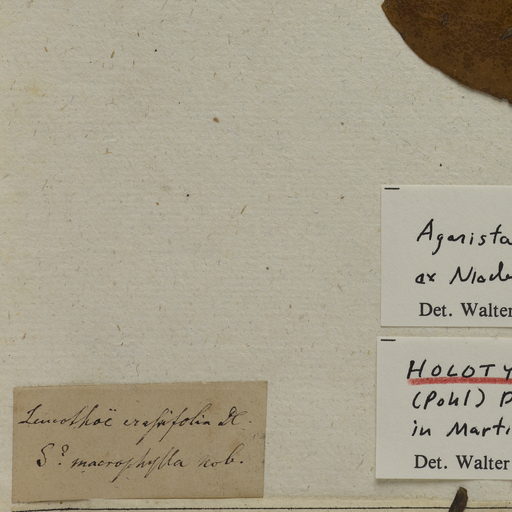 Agarista
ex Niede
Det. Walter
HOLOTY
(Pohl) D
in Marti
Det. Walter
Leucothoë crassifolia DC.
S? macrophylla nob.